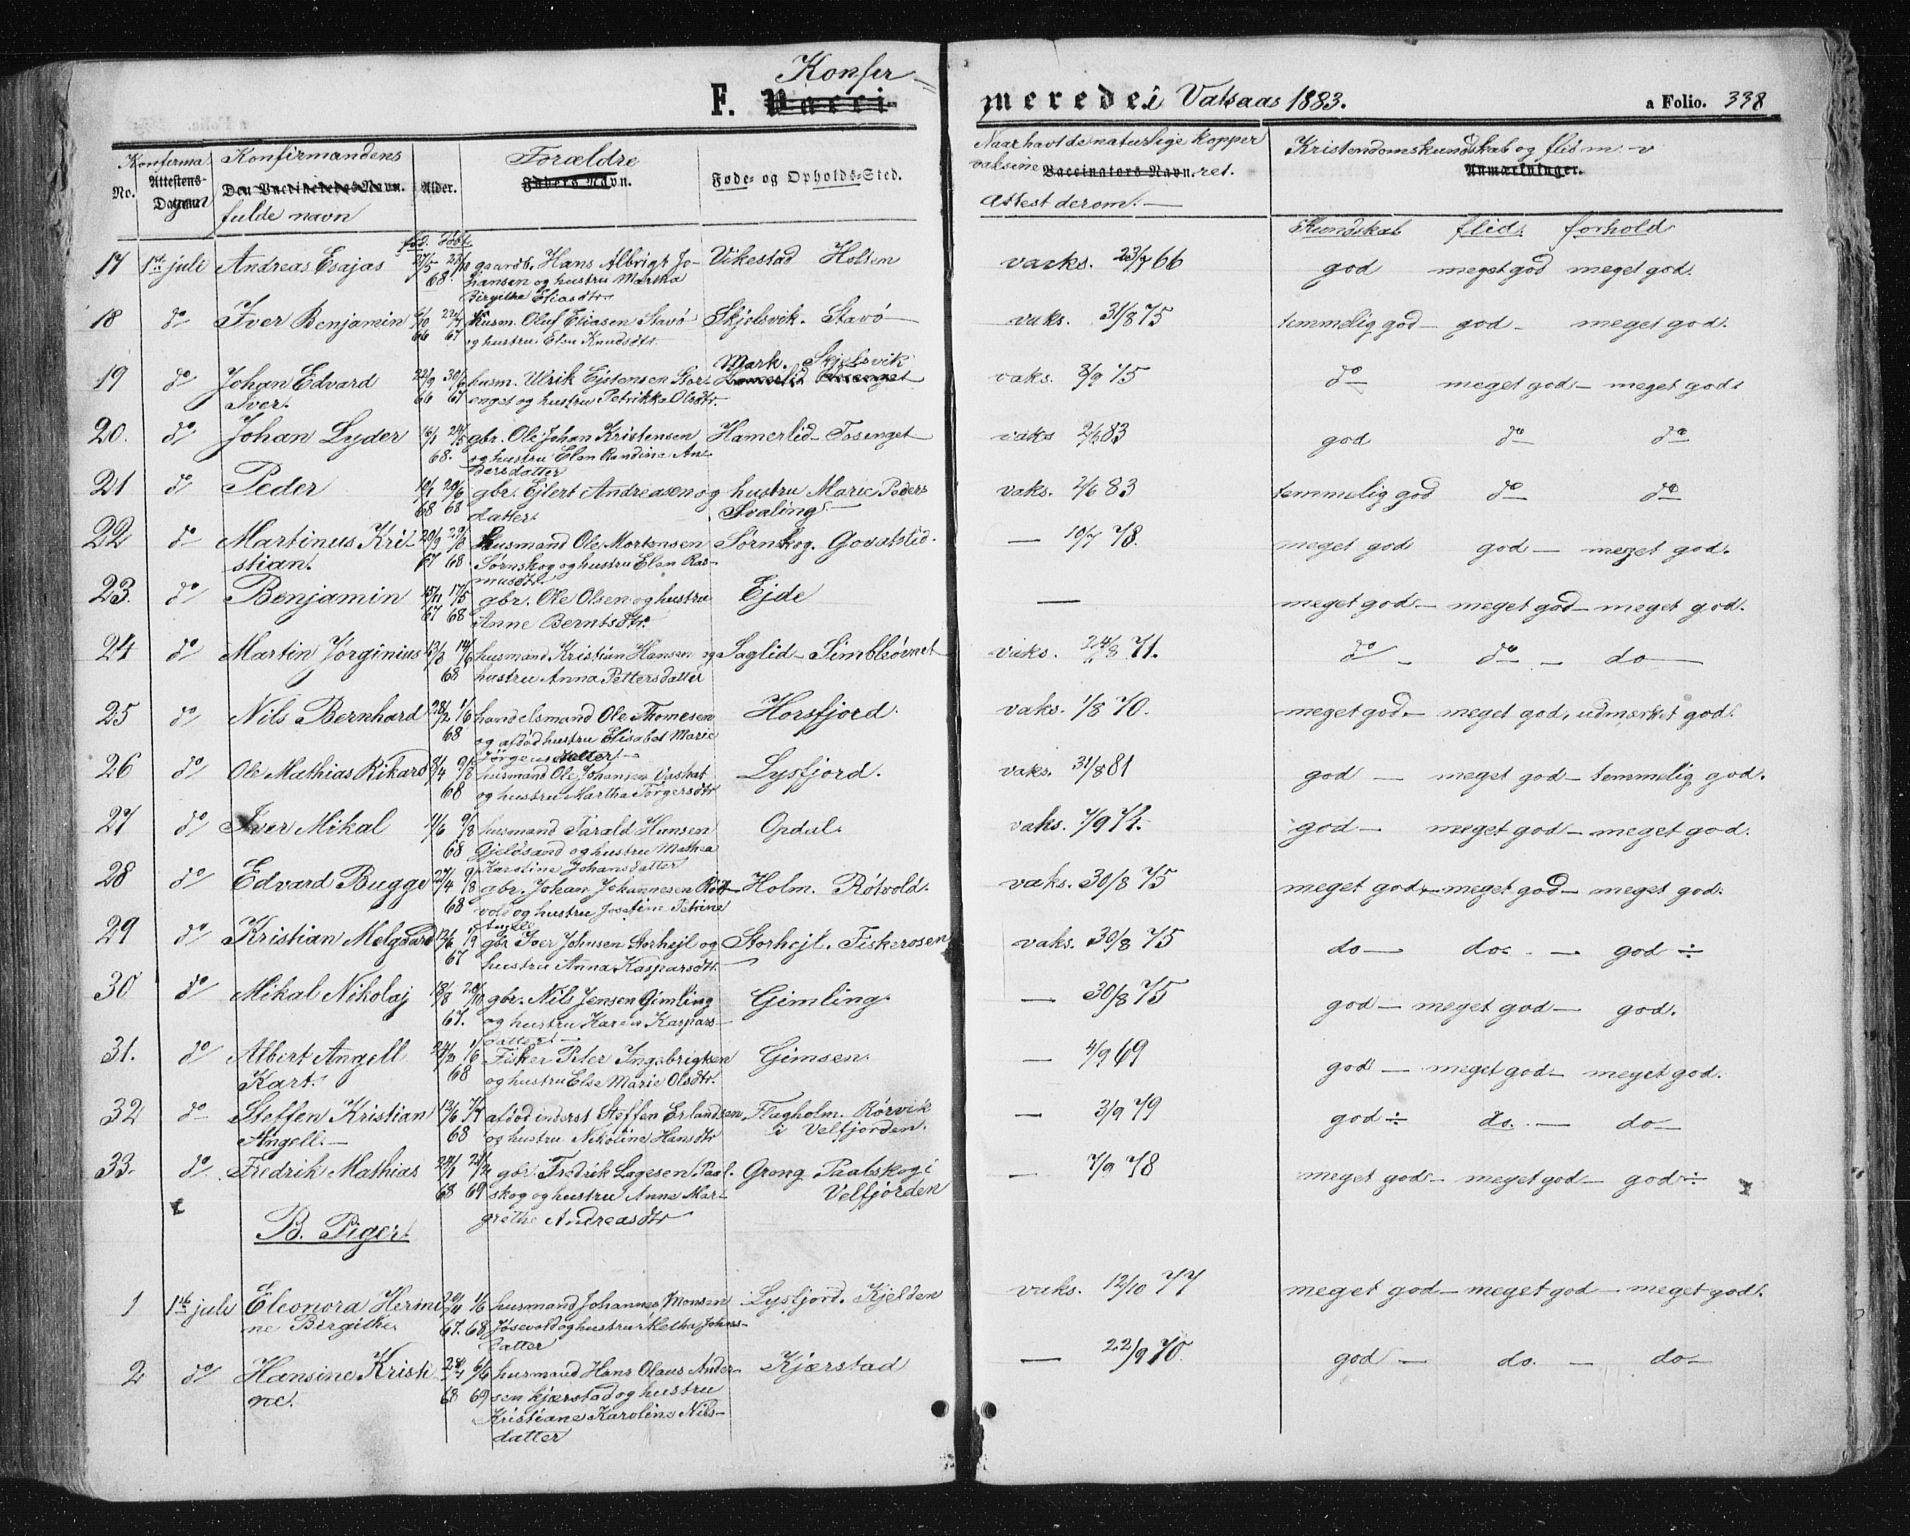 Konfer-
F. Vacci-
meredei Vatsaas 1883.
a Folio. 338
Konfirma.
No.
Attestens-
Dag
Konfirmandens
Den Vaccineredes Navn.
fulde navn
Alder.
Forældre
Faders Navn.
Føde- og Opholds-Sted.
Naar havt de naturlige kopper
vaksine Vaccinators Navn. ret.
Attest derom. —
Kristendomskundskab og flid m. v
Anmærkninger.
Kundskab flid. forhold
fød. døbt
17 1ste juli Andreas Esajas 27/5 68. gaardb. Hans Albrigt Jo- Vikestad Holsen vaks. 23/7 66 god meget god meget god.
hansen og hustru Martha
Birgithe Eliasdtr.
18 do Iver Benjamin 66 67 husm. Oluf Eliasen Stavø Skjelsvik. Stavø vaks. 31/8 75 temmelig god — god — meget god.
og hustru Elen Knudsdtr.
Mark. Skjelsvik
19 do Johan Edvard 22/9 66 30/6 67 husm. Ulrik Ejstensen Stor- Hamerlid Tosenget vaks. 8/9 75 do meget god — meget god.
Iver. enget og hustru Petrikke Olsdtr.
20. do Johan Lyder 16/1 24/5 68. gbr. Ole Johan Kristensen Hamerlid — Tosenget vaks 2/6 83 god do do
og hustru Elen Randine An-
dersdatter
21 do Peder 68 68 gbr. Ejlert Andreasen og hustru Marie Peders vaks. 2/6 83 temmelig god do do
datter. Svaling —
22 do Martinus Kri- 20/9 67 68 Husmand Ole Mortensen Sørnskog. Govatslid. — 10/7 78. meget god god — meget god.
stian. Sørnskog og hustru Elen Ras-
musdtr.
23. do Benjamin 15/11 67 17/5 68 gbr. Ole Olsen og hustru Ejde — meget god — meget god — meget god.
Anne Berntsdtr.
24 do Martin Jørginius 13/3 14/6 68 husmand Kristian Hansen og Saglid — Simblesøvnet vaks. 24/8 71. do — do — do —
hustru Anna Pettersdatter
25 do Nils Bernhard 28/2 1/6 68 handelsmand Ole Thomesen Horsfjord. vaks. 1/8 70. meget god — meget god, udmerket god.
og afdød hustru Elisabet Marie
Jørgensdatter —
26 do Ole Mathias Rikard 8/4 9/8 68 husmand Ole Johansen Lysfjord. vaks. 31/8 81 god — meget god — temmelig god.
og hustru Martha Torgersdtr
27 do Iver Mikal 11/6 9/8 68 husmand Tarald Hansen Opdal. vaks. 7/9 71. god — meget god — meget god.
Gjeldsand og hustru Mathea
Karoline Johansdatter
28 do Edvard Bugge 27/4 9/8 68 gbr. Johan Johannesen Røt- Holm. Røtvold. vaks. 30/8 75 meget god — meget god — meget god.
vold og hustru Josefine Petrine
Angell.
29 do Kristian Melgaard 67 gbr. Iver Johnsen Storhejl og Storhejl. Fiskerosen vaks. 30/8 75 do — do. — god ÷
hustru Anna Kaspersdtr.
30 do Mikal Nikolaj 18/8 20/10 67. gbr. Nils Jensen Gimling Gimling. — 30/8 75 god — meget god — god.
og hustru Karen Kaspars-
datter. —
31. do Albert Angell 24/2 1/6 68 Fisker Peter Ingebrigtsen Gimsen. — 4/9 69 god — meget god — meget god.
Kart. og hustru Else Marie Olsdtr.
32 do Steffen Kristian 13/6 68 afdød inderst Steffen Erlandsen Flagholm. Rørvik — 3/9 79 god ÷ do. — do —
Angell. — og hustru Nikoline Hansdtr i Velfjorden.
33. do Fredrik Mathias 24/1 68 69 gbr. Fredrik Lagesen Paal- Grong Paalskog i — 7/9 78 meget god — meget god — god ÷
skog og hustru Anne Mar- Velfjorden
grethe Andreasdtr
B. Piger.
1 1ste juli Eleonora Hermi 20/4 67. 1/6 68 husmand Johannes Monsen Lysfjord. Kjelden vaks. 12/10 77 meget god — meget god — meget god.
ne Birgithe Jøsevold og hustru Metha Johns-
datter
2 do Hansine Kristi 68 6/6 69 husmand Hans Olaus Ander- Kjærstad — 22/9 70. god — do. — do —
ne. sen kjærstad og hustru
Kristiane Karoline Nils-
datter